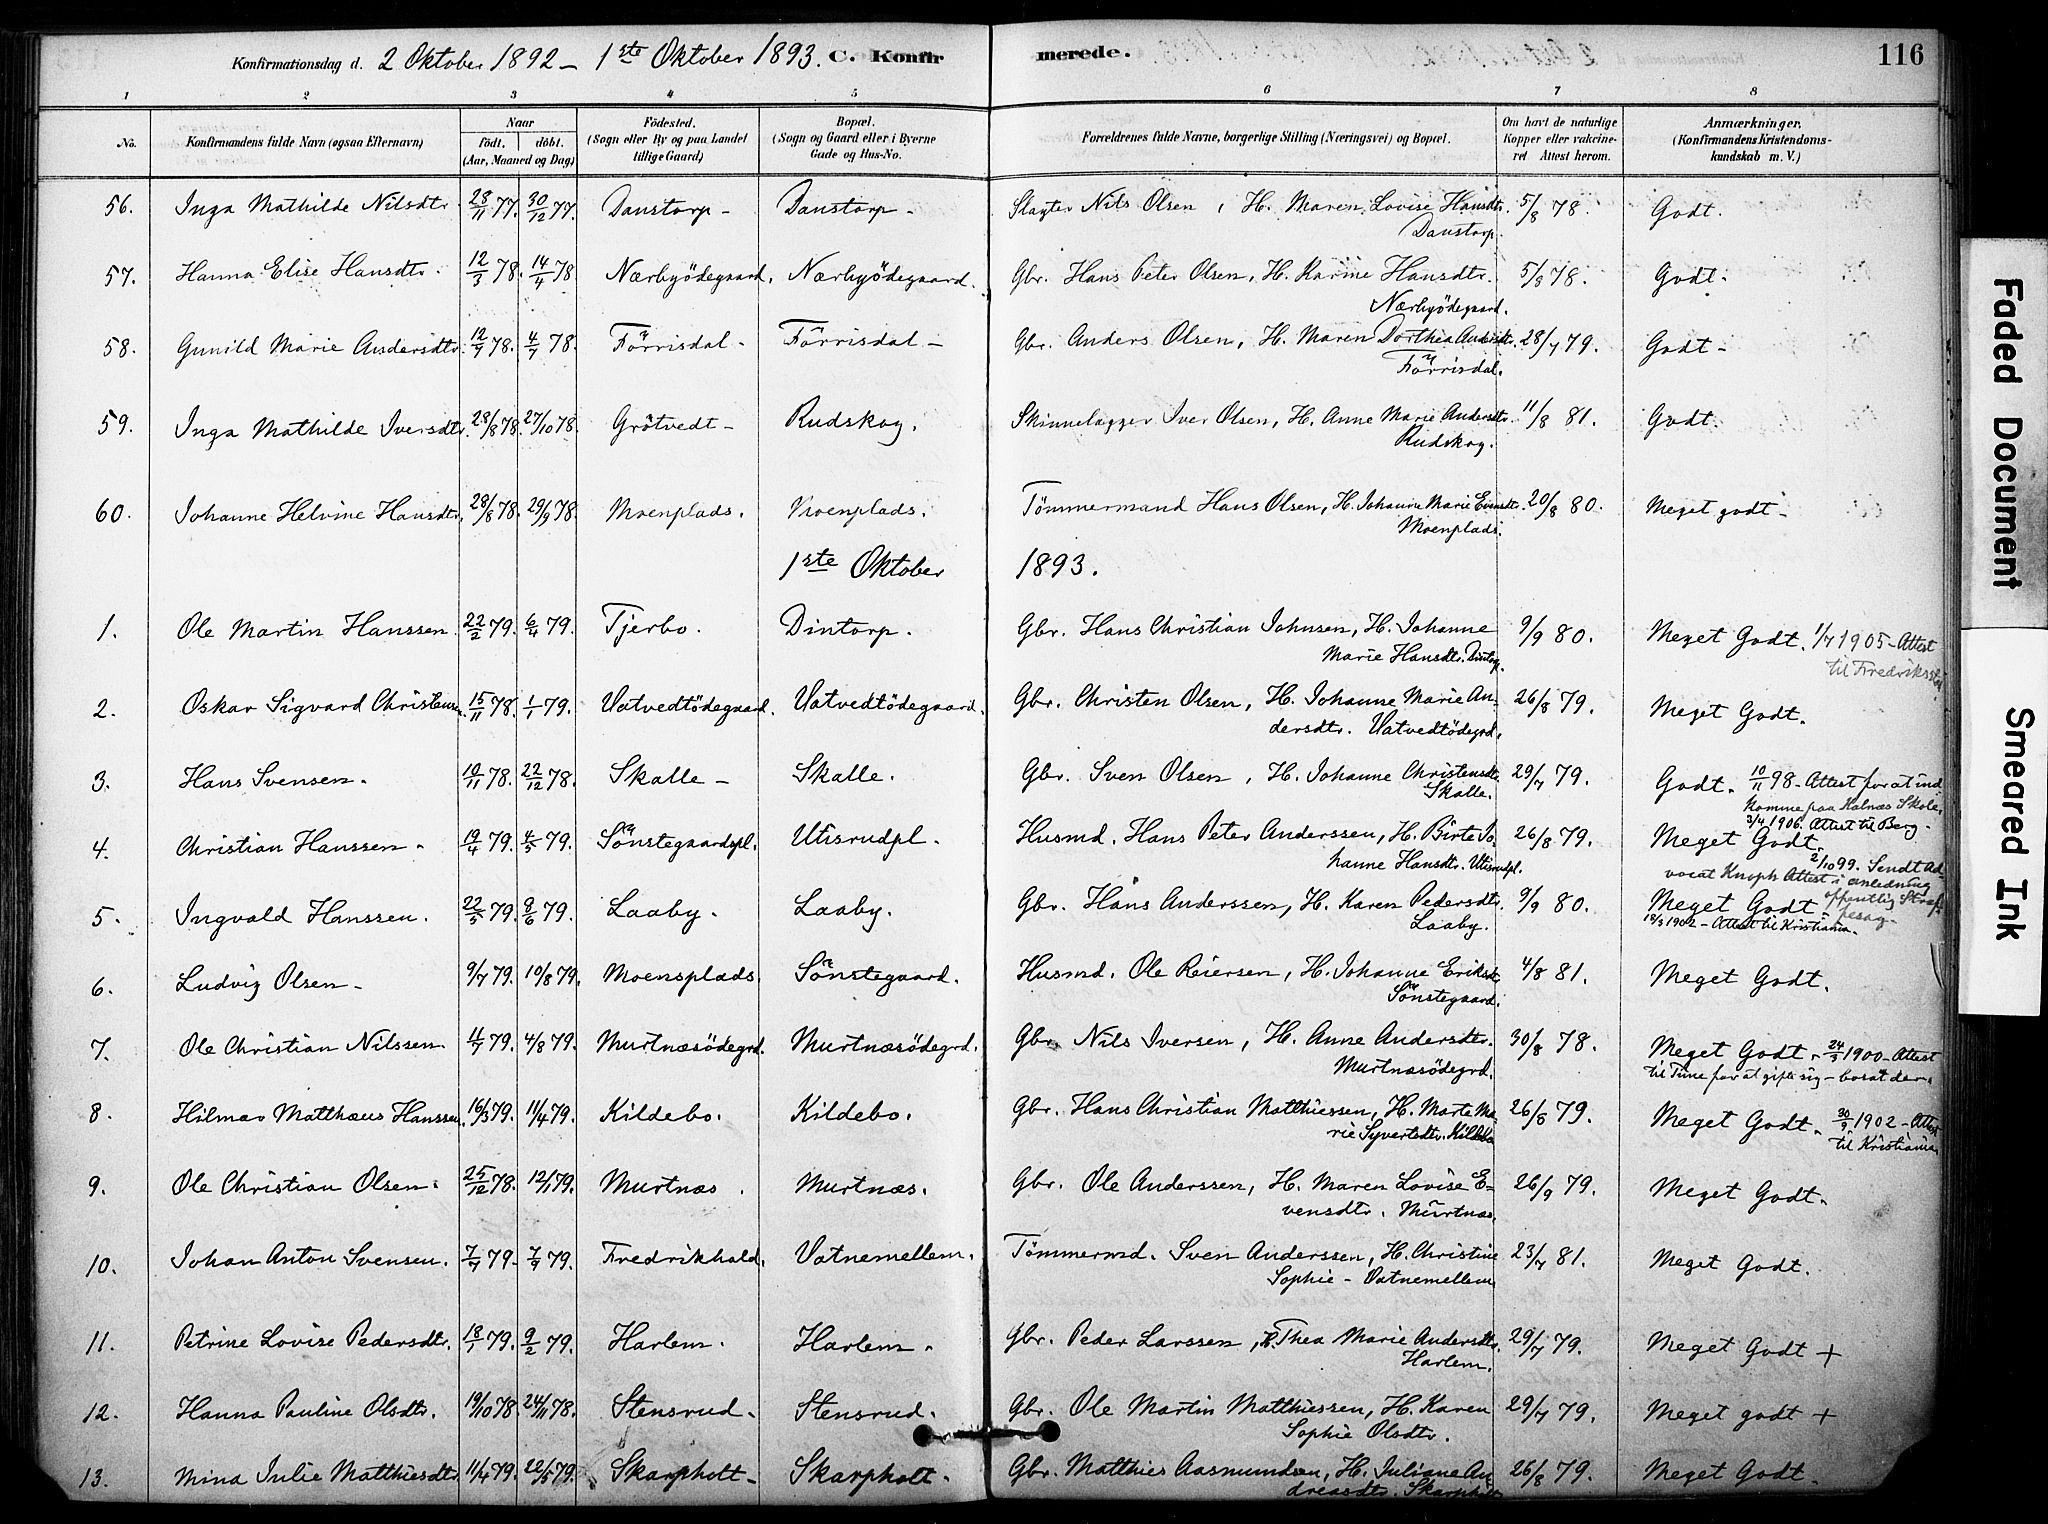 Konfirmationsdag d. 2 Oktober 1892 – 1ste Oktober 1893. C. Konfirmerede. 116
1 2 3 4 5 6 7 8
No. Konfirmandens fulde Navn (ogsaa Efternavn) Naar født, døbt. (Aar, Maaned og Dag) Fødested. (Sogn eller By og paa Landet tillige Gaard) Bopæl. (Sogn og Gaard eller i Byerne Gade og Hus-No. Forældrenes fulde Navne, borgerlige Stilling (Næringsvei) og Bopæl. Om havt de naturlige Kopper eller vakcineret Attest herom. Anmærkninger. (Konfirmandens Kristendomskundskab m. V.)
56. Inga Mathilde Nilsdtr. 28/11 77. 30/12 77. Danstorp – Danstorp – Slagter Nils Olsen, H. Maren Lovise Hansdtr. 5/8 78. Godt.
Danstorp.
57. Hanna Elise Hansdtr. 12/3 78. 14/4 78. Nærbyödegaard. Nærbyödegaard. Gbr. Hans Peter Olsen, H. Karine Hansdtr. 5/8 78. Godt.
Nærbyödegaard.
58. Gunild Marie Andersdtr. 78. 78. Förrisdal – Förrisdal – Gbr. Anders Olsen, H. Maren Dorthea Andersdtr. 28/7 79. Godt –
Förrisdal.
59. Inga Mathilde Iversdtr. 28/8 78. 27/10 78. Grötvedt – Rudskog. Skinnelægger Iver Olsen, H. Anne Marie Andersdtr. 11/8 81. Godt.
Rudskog.
60. Johanne Helvine Hansdtr. 28/8 78. 29/9 78. Moenplads. Moenplads. Tömmermand Hans Olsen, H. Johanne Marie Evensdtr. 20/8 80. Meget godt –
Moenplads.
1ste Oktober 1893.
1. Ole Martin Hanssen. 22/2 79. 6/4 79. Tjerbo. Dintorp. Gbr. Hans Christian Johnsen, H. Johanne 9/9 80. Meget Godt. 1/7 1905 – Attest
Marie Hansdtr. Dintorp. til Fredriksstad
2. Oskar Sigvard Christensen. 15/11 78. 1/1 79. Vatvedtödegaard. Vatvedtödegaard. Gbr. Christen Olsen, H. Johanne Marie An- 26/8 79. Meget Godt.
dersdtr. Vatvedtödegrd.
3. Hans Svensen. 10/11 78. 22/12 78. Skalle – Skalle. Gbr. Sven Olsen, H. Johanne Christensdtr. 29/7 79. Godt. 10/11 98 – Attest for at ind
Skalle. komme paa Kalnæs Skole.
3/4 1906. Attest til Berg.
4. Christian Hanssen. 19/4 79. 4/5 79. Sönstegaardspl. Utisrudpl. Husmd. Hans Peter Anderssen, H. Birte Jo- 26/8 79. Meget Godt.
hanne Hansdtr. Utisrudpl. 2/10 99. Sendt Ad-
vocat Knoph Attest i anledning
5. Ingvald Hanssen. 22/5 79. 8/6 79. Laaby. Laaby. Gbr. Hans Anderssen, H. Karen Pedersdtr. 9/9 80. Meget Godt. offentlig Straf-
Laaby. 1902 – Attest til Kristiania. fesag.
6. Ludvig Olsen – 9/7 79. 10/8 79. Moensplads. Sönstegaard. Husmd. Ole Reiersen, H. Johanne Eriksdtr. 4/8 81. Meget Godt.
Sönstegaard.
7. Ole Christian Nilssen. 79. 4/8 79. Murtnæsödegrd. Murtnæsödegrd. Gbr. Nils Iversen, H. Anne Andersdtr. 30/8 78. Meget Godt. 1900 – Attest
Murtnæsödegrd. til Tune for at gifte sig – bosat der.
8. Hilmar Matthæus Hanssen. 16/3 79. 11/4 79. Kildebo. Kildebo. Gbr. Hans Christian Matthiessen, H. Marte Ma- 26/8 79. Meget Godt. 30/9 1902 – Attest
rie Syvertsdtr. Kildebo til Kristiania
9. Ole Christian Olsen. 25/12 78. 12/1 79. Murtnæs. Murtnæs. Gbr. Ole Anderssen, H. Maren Lovise E- 26/9 79. Meget Godt.
vensdtr. Murtnæs.
10. Johan Anton Svensen. 79. 79. Fredrikhald. Vatnemellem. Tömmermd. Sven Anderssen, H. Christine 23/7 81. Meget Godt.
Sophie – Vatnemellem
11. Petrine Lovise Pedersdtr. 18/1 79. 9/2 79. Harlem. Harlem. Gbr. Peder Larssen, H. Thea Marie Andersdtr. 29/7 79. Meget Godt +
Harlem.
12. Hanna Pauline Olsdtr. 19/10 78. 24/11 78. Stensrud. Stensrud. Gbr. Ole Martin Matthiessen, H. Karen 29/7 79. Meget godt +
Sophie Olsdtr.
13. Mina Julie Matthiesdtr. 11/4 79. 22/5 79. Skarpholt – Skarpholt. Gbr. Matthies Aasmundsen, H. Juliane An- 26/8 79. Meget Godt.
dreasdtr. Skarpholt
Faded Document
Smeared Ink